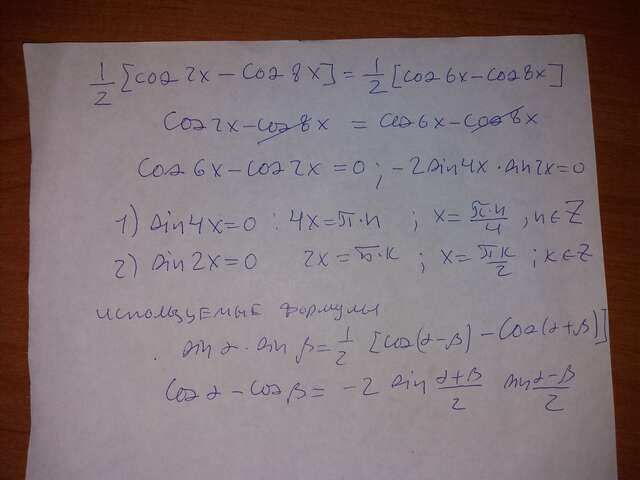 1/2 [cos 2x − cos 8x] = 1/2 [cos 6x − cos 8x]
cos 2x − cos 8x = cos 6x − cos 8x
cos 6x − cos 2x = 0 ; −2 sin 4x · sin 2x = 0
1) sin 4x = 0 : 4x = π·n ; x = π·n/4 , n ∈ Z
2) sin 2x = 0 2x = π·k ; x = πk/2 ; k ∈ Z
используемые формулы
sin α · sin β = 1/2 [cos(α−β) − cos(α+β)]
cos α − cos β = −2 sin α+β/2 sin α−β/2